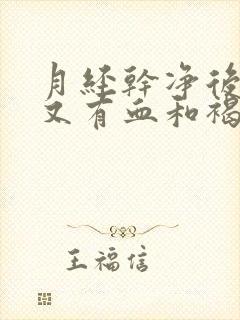 月经幹净後
又有血和褐
王福信